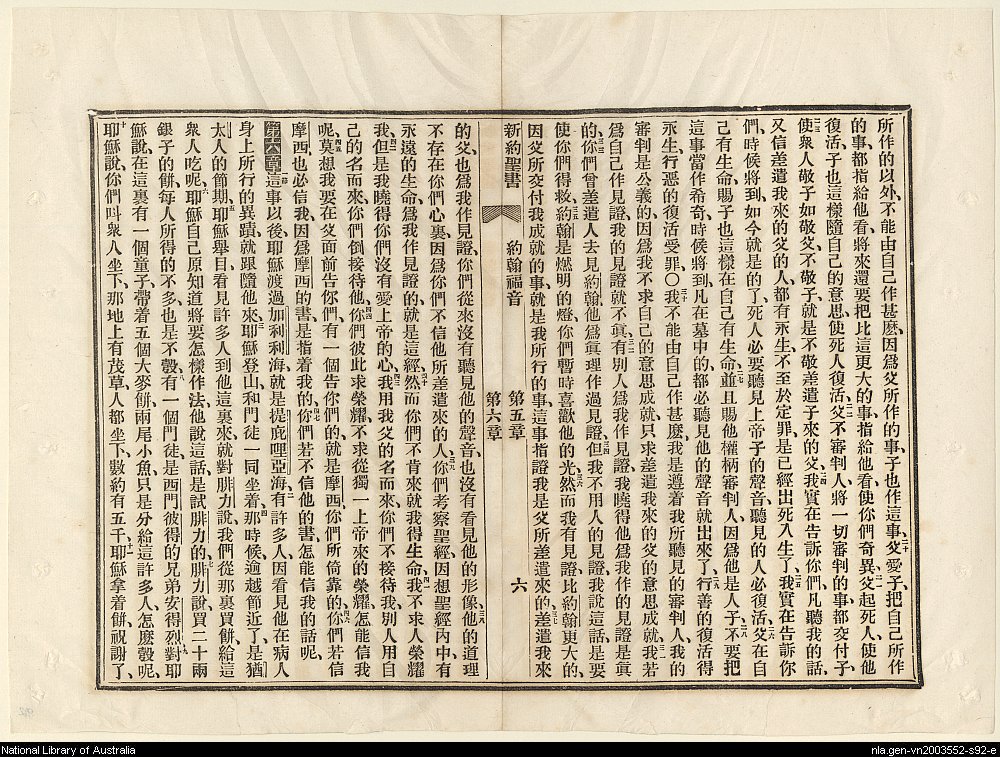 所作的以外、不能由自己作甚麽、因爲父所作的事、子也作這事、二十父愛子、把自己所作
的事、都指給他看、將來還要把比這更大的事、指給他看、使你們奇異、二一父起死人、使他
復活、子也這樣隨自己的意思、使死人復活、二二父不審判人、將一切審判的事、都交付子、
二三使衆人敬子如敬父、不敬子、就是不敬差遣子來的父、二四我實在告訴你們、凡聽我的話、
又信差遣我來的父的人、都有永生、不至於定罪、是已經出死入生了、二五我實在告訴你
們、時候將到、如今就是的了、死人必要聽見上帝子的聲音、聽見的人必復活、二六父在自
己有生命、賜子也這樣在自己有生命、二七並且賜他權柄審判人、因爲他是人子、二八不要把
這事當作希奇、時候將到、凡在墓中的、都必聽見他的聲音、就出來了、二九行善的復活得
永生、行惡的復活受罪、〇三十我不能由自己作甚麽、我是遵着我所聽見的審判人、我的
審判是公義的、因爲我不求自己的意思成就、只求差遣我來的父的意思成就、三一我若
爲自己作見證、我的見證就不眞、三二有別人爲我作見證、我曉得他爲我作的見證是眞
的、三三你們曾差遣人去見約翰、他爲眞理作過見證、三四但我不用人的見證、我說這話、是要
使你們得救、三五約翰是燃明的燈、你們暫時喜歡他的光、三六然而我有見證、比約翰更大的、
因父所交付我成就的事、就是我所行的事、這事指證我是父所差遣來的、三七差遣我來
新約聖書 約翰福音 第五章 第六章 六
的父、也爲我作見證、你們從來沒有聽見他的聲音、也沒有看見他的形像、三八他的道理
不存在你們心裏、因爲你們不信他所差遣來的人、三九你們考察聖經、因想聖經內中有
永遠的生命、爲我作見證的就是這經、四十然而你們不肯來就我得生命、四一我不求人榮耀
我、四二但是我曉得你們沒有愛上帝的心、四三我用我父的名而來、你們不接待我、別人用自
己的名而來、你們倒接待他、四四你們彼此求榮耀、不求從獨一上帝來的榮耀、怎能信我
呢、四五莫想我要在父面前告你們、有一個告你們的、就是摩西、你們所倚靠的、四六你們若信
摩西、也必信我、因爲摩西的書是指着我的、四七你們若不信他的書、怎能信我的話呢、
第六章一這事以後、耶穌渡過加利利海、就是提庇哩亞海、二有許多人、因看見他在病人
身上所行的異蹟、就跟隨他來、三耶穌登山、和門徒一同坐着、四那時候逾越節近了、是猶
太人的節期、五耶穌舉目看見許多人到他這裏來、就對腓力說、我們從那裏買餅給這
衆人吃呢、六耶穌自己原知道將要怎樣作法、他說這話、是試腓力的、七腓力說、買二十兩
銀子的餅、每人所得的不多、也是不彀、八有一個門徒、是西門彼得的兄弟安得烈、九對耶
穌說、在這裏有一個童子、帶着五個大麥餅、兩尾小魚、只是分給這許多人、怎麽彀呢、
十耶穌說、你們叫衆人坐下、那地上有茂草、人都坐下、數約有五千、十一耶穌拿着餅、祝謝了、
National Library of Australia
nla.gen-vn2003552-s92-e